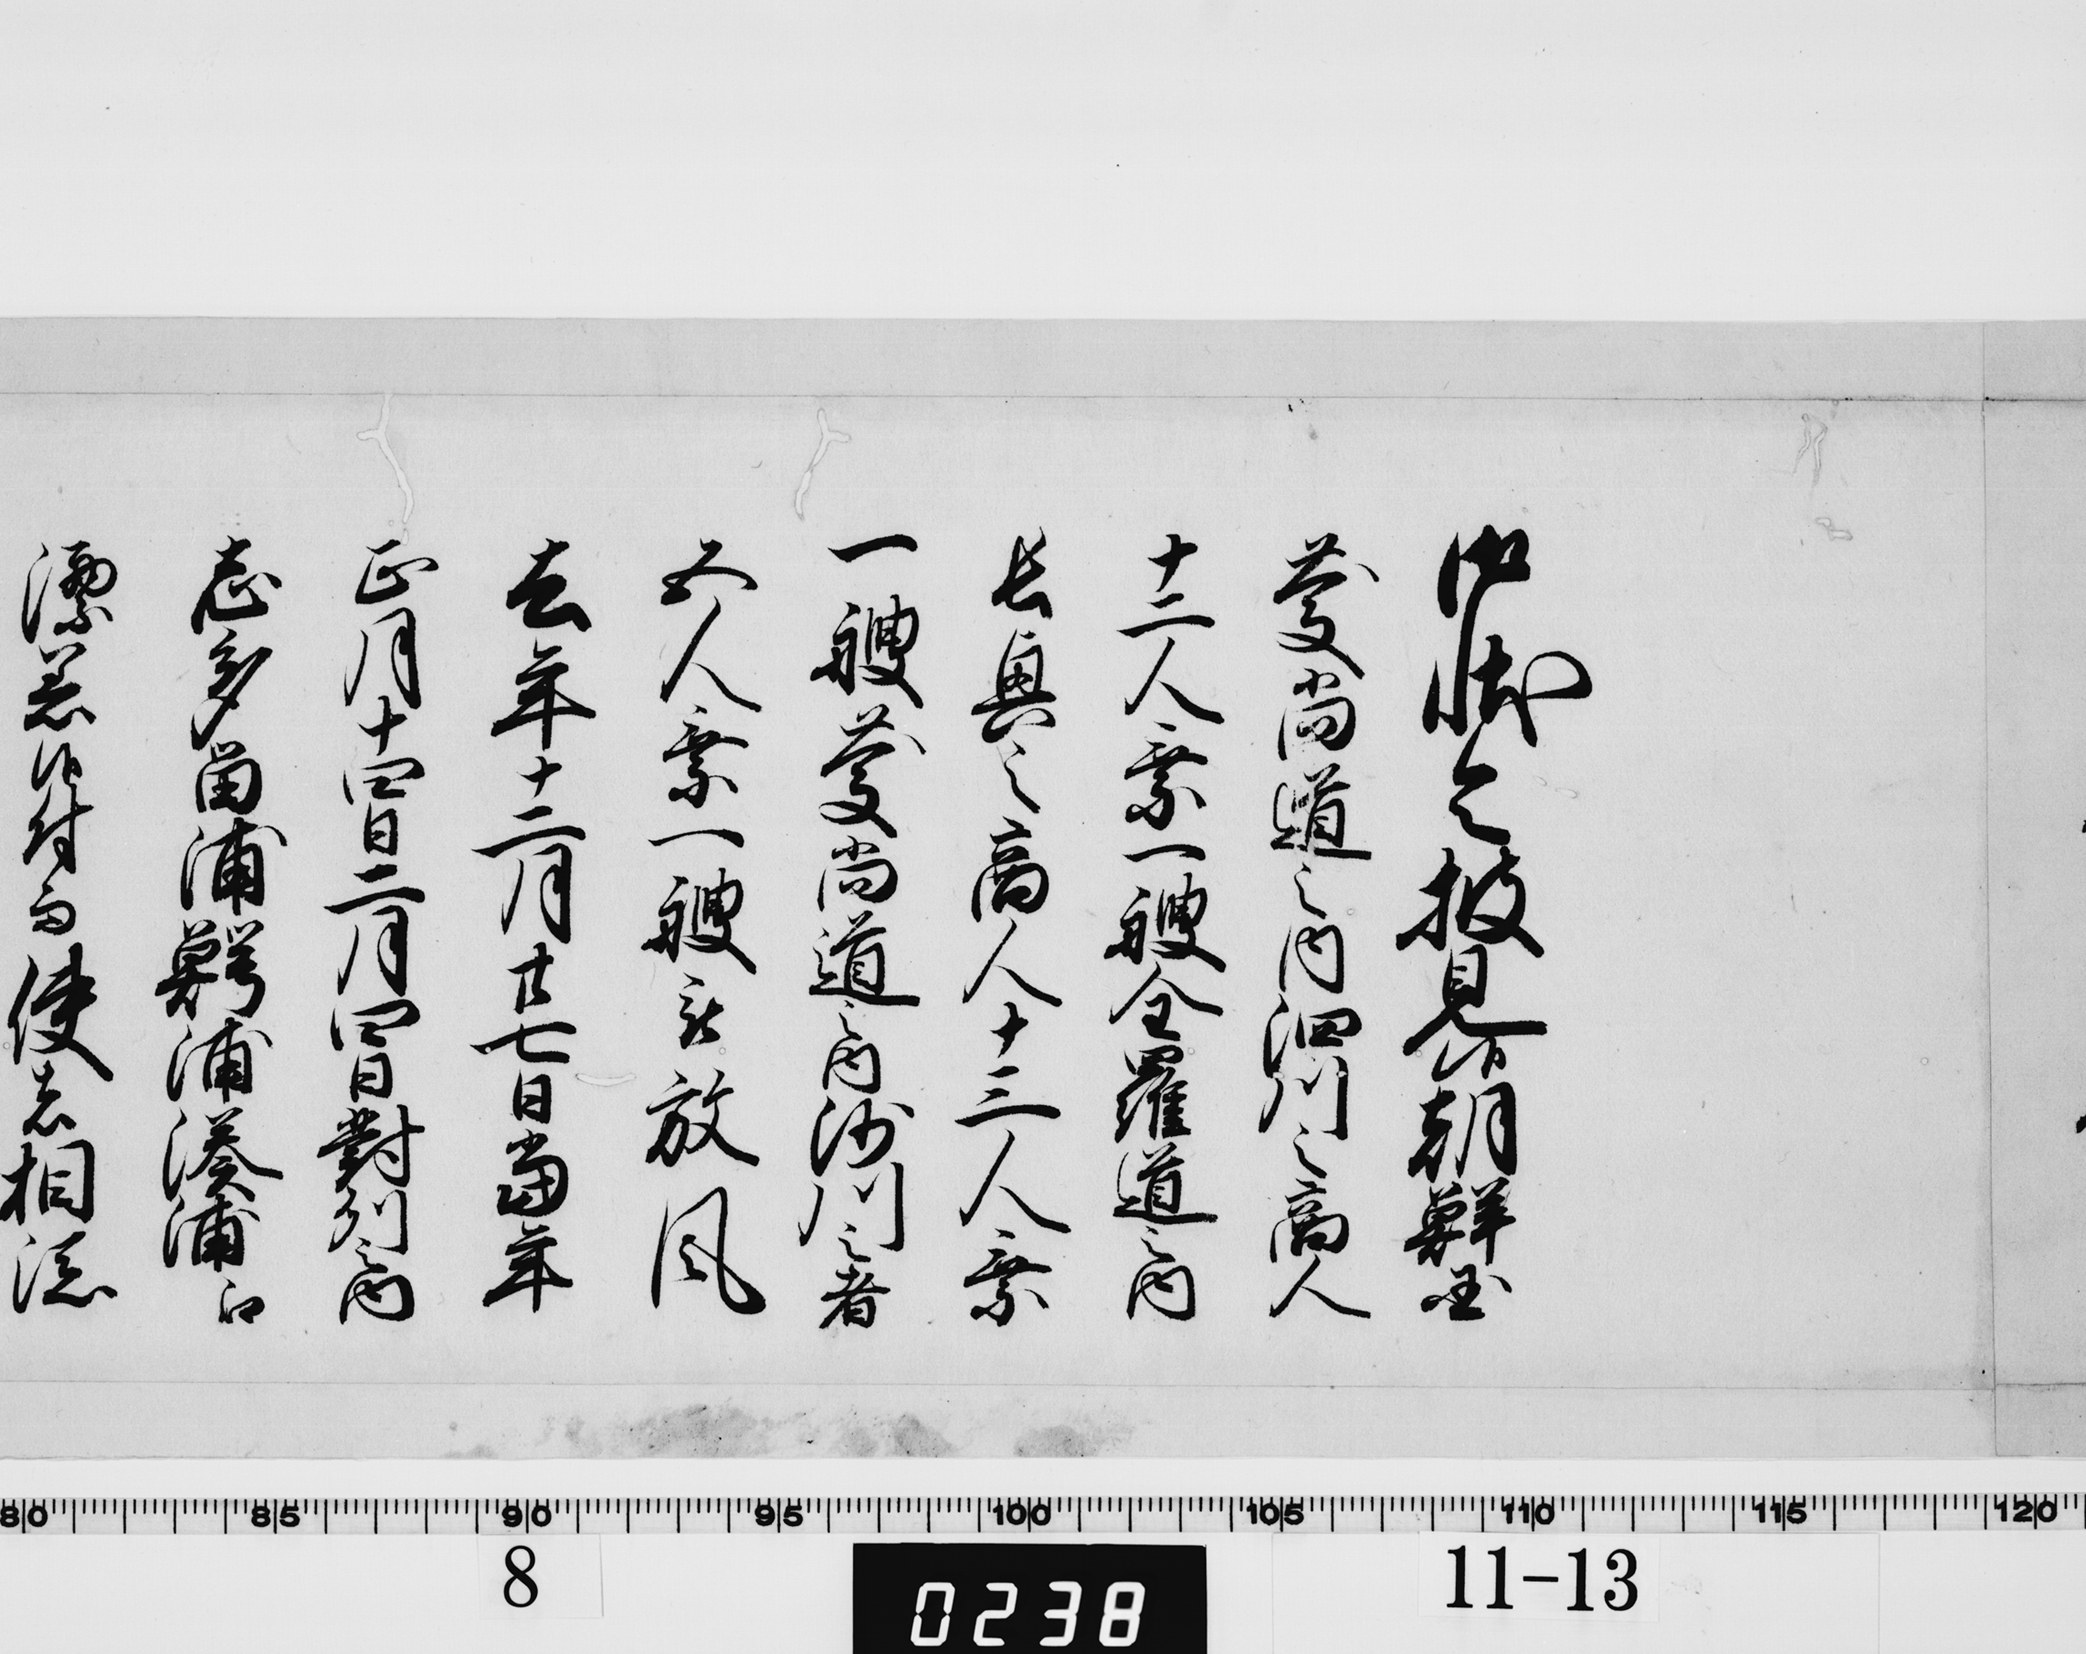 御状令披見候朝鮮国
慶尚道之内泗川之商人
十二人乗一艘全羅道之内
長興之商人十三人乗
一艘慶尚道之内泗川之者
五人乗一艘被放風
去年十二月廿七日当年
正月十四日二月四日対列之内
志多留浦鰐浦湊浦江
漂着候付而使者相添
80 85 90 95 100 105 110 115 120
8
0238
11-13